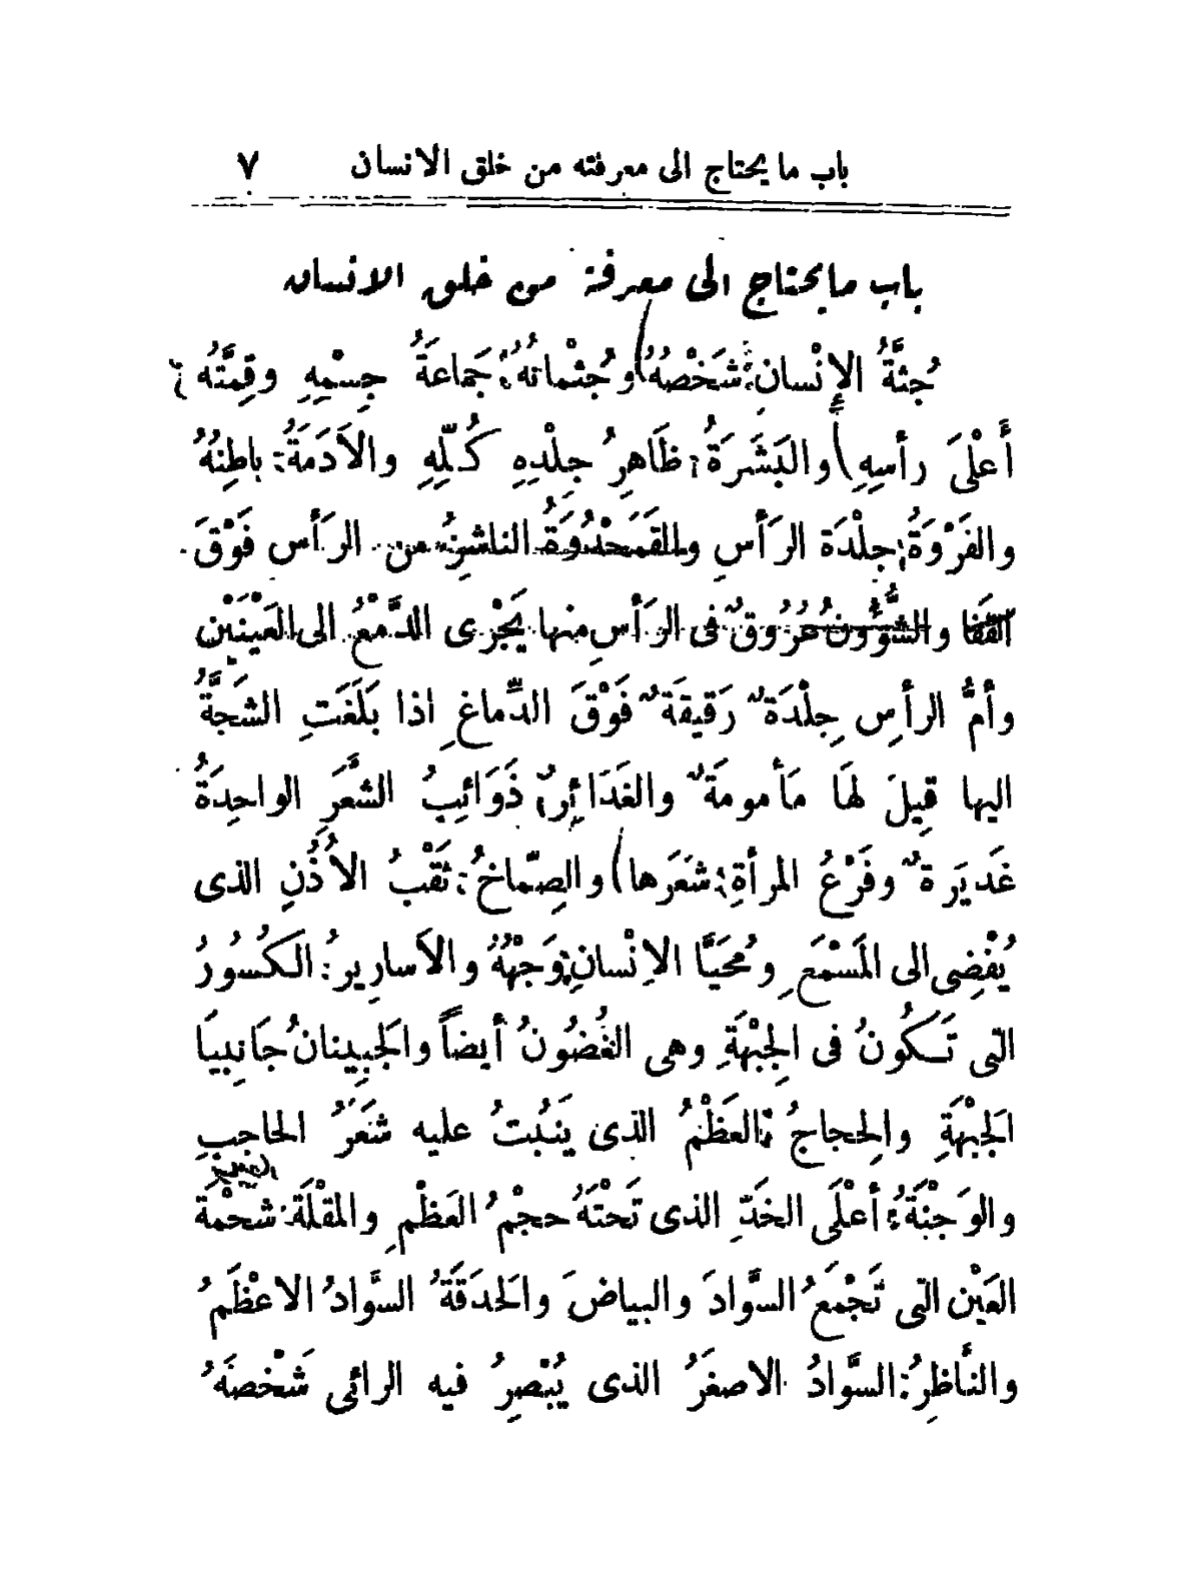 باب ما يحتاج الى معرفته من خلق الانسان ٧
باب ما يحتاج الى معرفة من خلق الانسان
جُثَّةُ الإِنْسان: شَخْصُهُ وجُثْمانُهُ: جَماعَةُ جِسْمِهِ وقِمَّتُه:
أَعْلَى رأسِهِ) والبَشَرَةُ: ظَاهِرُ جِلْدِهِ كُلِّهِ والأَدَمَةُ: باطِنُهُ
والفَرْوَةُ: جِلْدَة الرَأسِ والقَمَحْدُوَةُ الناشِزُ من الرَأس فَوْقَ
القَفَا والشُّؤُونُ عُرُوقٌ فى الرَأسِ منها يَجْرِى الدَّمْعُ الى العَيْنَيْن
وأمُّ الرأسِ جِلْدَةٌ رَقيقَةٌ فَوْقَ الدِّماغِ اذا بَلَغَتِ الشَجَّةُ
اليها قِيلَ لهَا مَأمومَةٌ والغَدَائِرُ: ذَوَائِبُ الشَّعَرِ الواحِدَةُ
غَديَرةٌ وفَرْعُ المرأةِ: شَعَرها) والصِّماخُ: ثَقْبُ الأُذُنِ الذى
يُفْضِى الى المَسْمَعِ ومُحَيَّا الاِنْسانِ: وَجْهُهُ والأَسارِيرُ: الكُسُورُ
التى تَكُونُ فى الجِبْهَةِ وهى الغُضُونُ أيضاً والجَبِينانُ جَانِبيَا
الجَبْهَةِ والحِجاجُ: العَظْمُ الذى يَنبُتُ عليه شَعَرُ الحاجِبِ
والوَجْنَةُ: أعْلَى الخَدِّ الذى تَحْتَهُ حجْمُ العَظْمِ والمقْلَة: شَحْمَة
العَيْن التى تَجْمَعُ السَّوادَ والبياضَ والحَدَقَةُ السَّوادُ الاعْظَمُ
والنَّاظِرُ: السَّوادُ الاصغَرُ الذى يُبْصِرُ فيه الرائى شَخْصَهُ